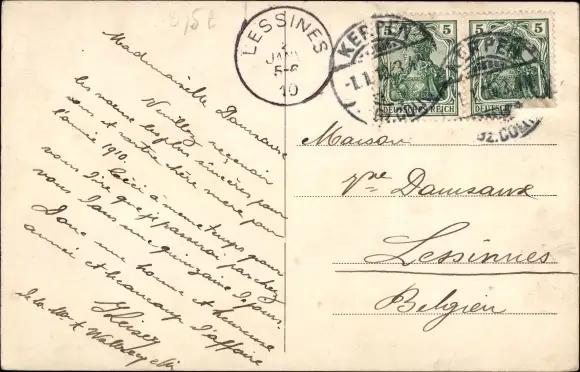 LESSINES
2
JANV
5-6
10
KERPEN
-1.1.10
5
5
DEUTSCHES REICH
DEUTSCHES
KERPEN
Bz. Cöln
Mademoiselle Damsaux
Veuillez recevoir
les voeux les plus sincères pour
vous et votre chère mère pour
l'année 1910. Ceci à même temps pour
vous dire que je passerai par chez
vous dans une quinzaine de jours.
Donc une bonne et heureuse
année et beaucoup d'affaire
de la
Maison
Damsaux
Lessinnes
Belgien